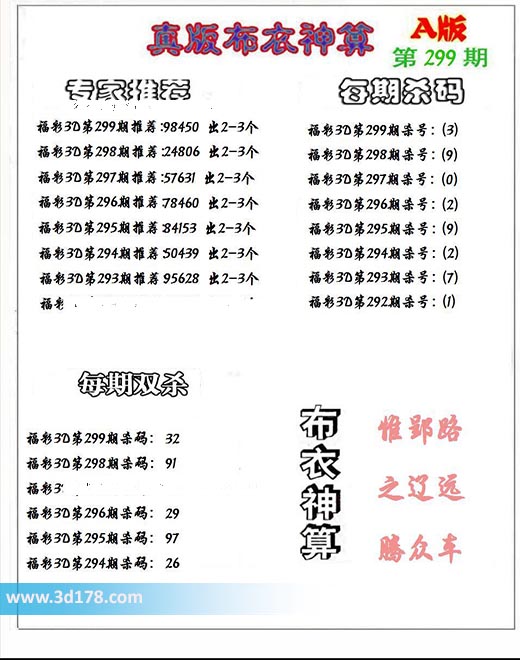 真版布衣神算
A版
第299期
专家推荐
福彩3D第299期推荐:98450 出2-3个
福彩3D第298期推荐:24806 出2-3个
福彩3D第297期推荐:57631 出2-3个
福彩3D第296期推荐:78460 出2-3个
福彩3D第295期推荐:84153 出2-3个
福彩3D第294期推荐:50439 出2-3个
福彩3D第293期推荐:95628 出2-3个
福彩
每期杀码
福彩3D第299期杀号：(3)
福彩3D第298期杀号：(9)
福彩3D第297期杀号：(0)
福彩3D第296期杀号：(2)
福彩3D第295期杀号：(9)
福彩3D第294期杀号：(2)
福彩3D第293期杀号：(7)
福彩3D第292期杀号：(1)
每期双杀
福彩3D第299期杀码： 32
福彩3D第298期杀码： 91
福彩3
福彩3D第296期杀码： 29
福彩3D第295期杀码： 97
福彩3D第294期杀码： 26
布衣神算
惟郢路
之辽远
腾众车
www.3d178.com